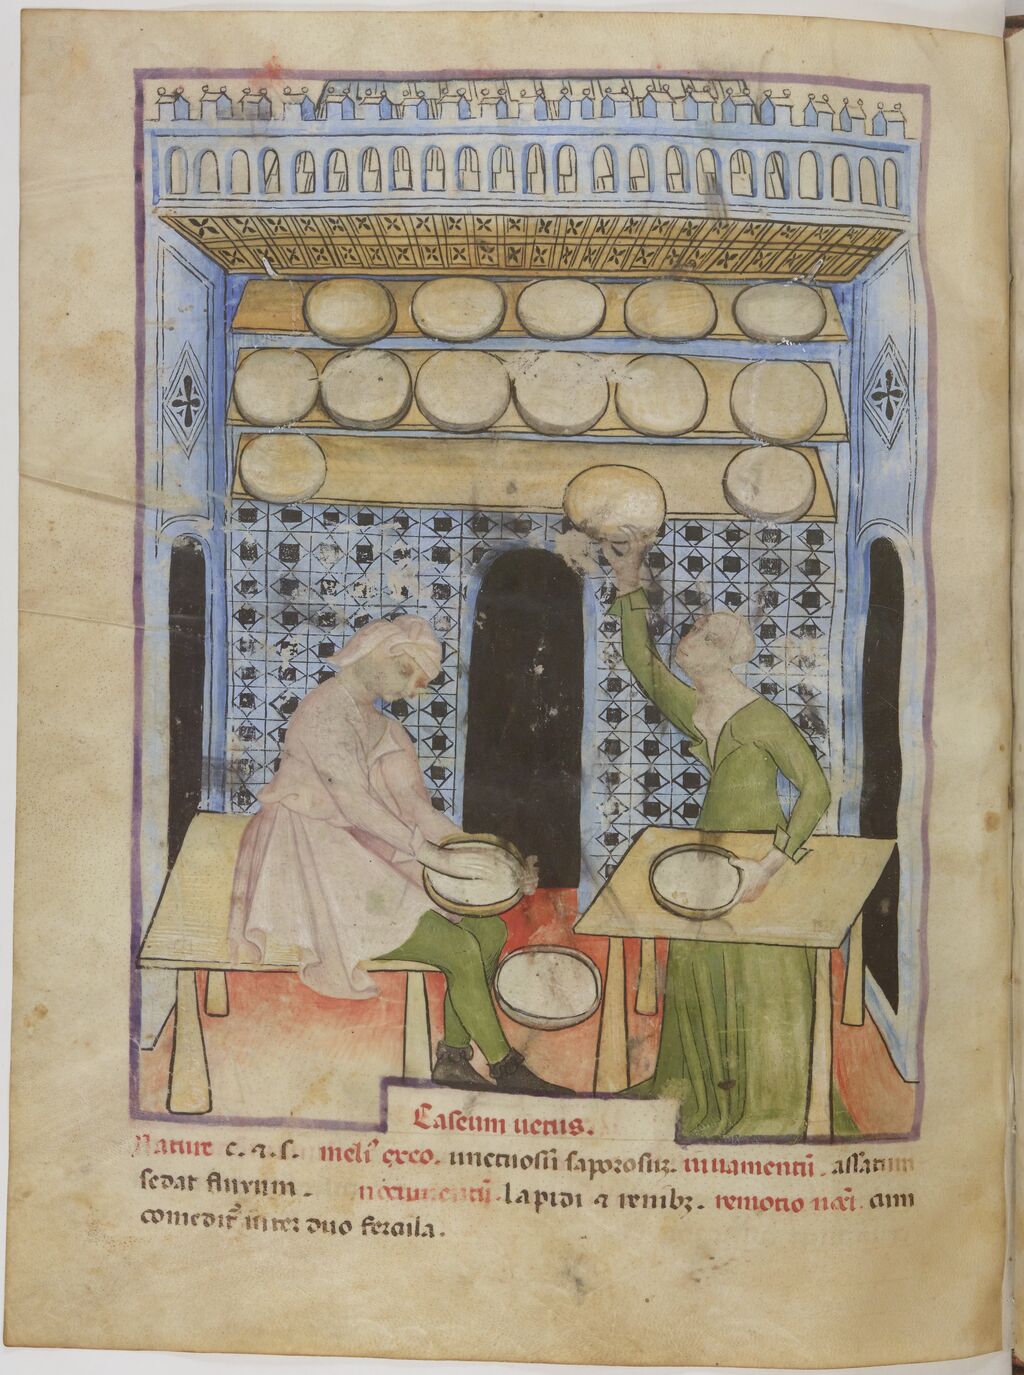 Caseum uetus.
Nature c. ⁊ .s. meli᾽ ex eo. unctuosū saporosuꝫ. iuuamentū. assatum
sedat fluxum. nocumentū. lapidi ⁊ renibꝫ. remotio noc̄i. cum
comedit᷑ inter duo fercula.